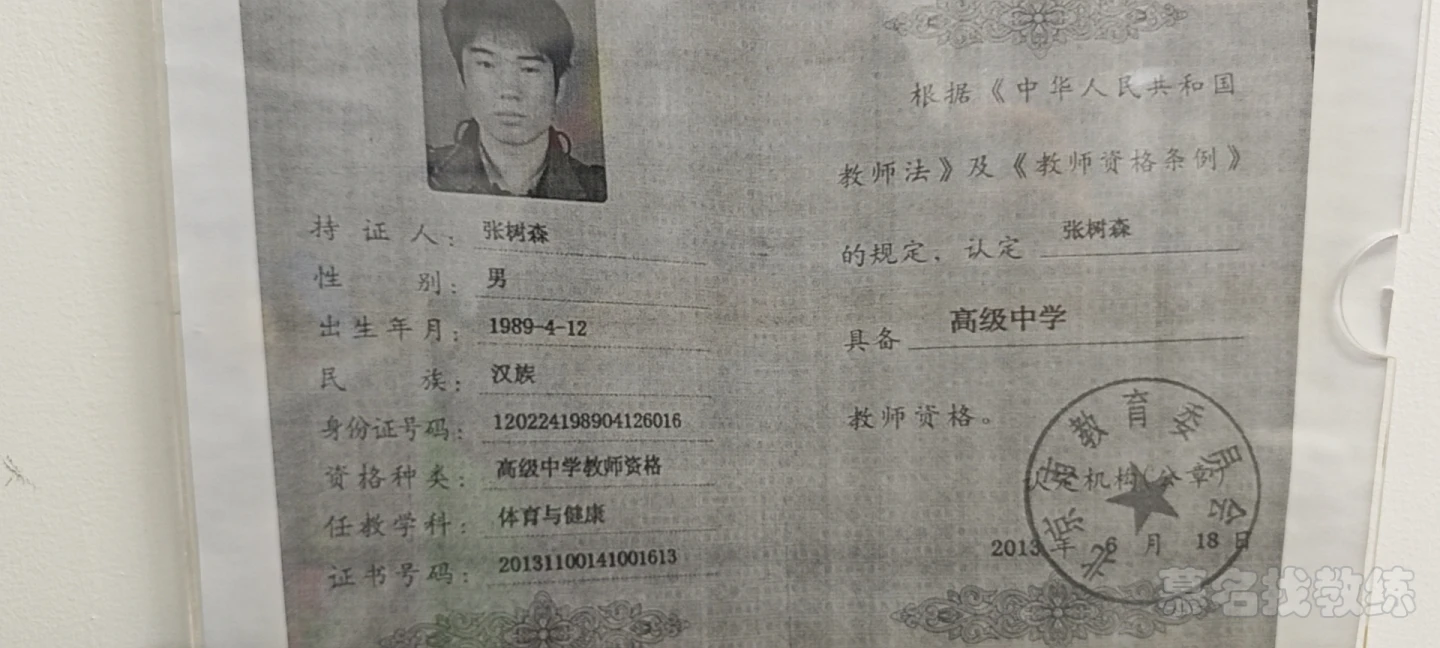 持证人：张树森
性别：男
出生年月：1989-4-12
民族：汉族
身份证号码：120224198904126016
资格种类：高级中学教师资格
任教学科：体育与健康
证书号码：20131100141001613
根据《中华人民共和国
教师法》及《教师资格条例》
的规定，认定 张树森
具备 高级中学
教师资格。
北京市教育委员会
认定机构（公章）
2013 年 6 月 18 日
慕名找教练